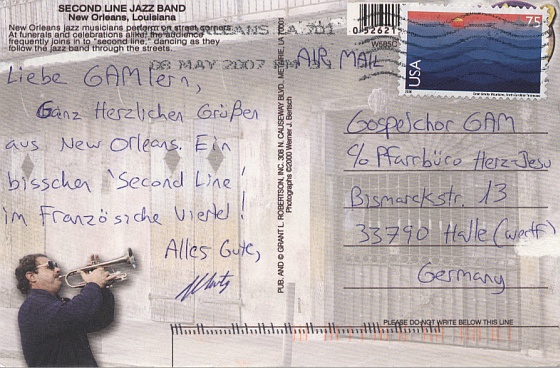 SECOND LINE JAZZ BAND
New Orleans, Louisiana
New Orleans jazz musicians perform on street corners.
At funerals and celebrations alike, the audience
frequently joins in to "second line," dancing as they
follow the jazz band through the streets.
08 MAY 2007 PM
AIR MAIL
75
USA
Liebe GAMlern,
Ganz Herzlichen Grüßen
aus New Orleans. Ein
bisschen 'Second Line'
im Französiche Viertel!
Alles Gute,
PUB. AND © GRANT L. ROBERTSON, INC. 308 N. CAUSEWAY BLVD. METAIRIE, LA. 70001
Photographs ©2000 Werner J. Bertsch
Gospelchor GAM
c/o Pfarrbüro Herz-Jesu
Bismarckstr. 13
33790 Halle (Westf)
Germany
PLEASE DO NOT WRITE BELOW THIS LINE